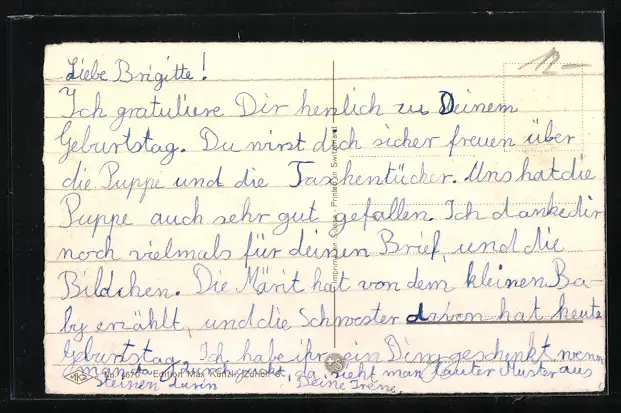 12.—
Liebe Brigitte!
Ich gratuliere Dir herzlich zu Deinem
Geburtstag. Du wirst dich sicher freuen über
die Puppe und die Taschentücher. Uns hat die
Puppe auch sehr gut gefallen. Ich danke dir
noch vielmals für deinen Brief, und die
Bildchen. Die Märit hat von dem kleinen Ba-
by erzählt, und die Schwester davon hat heute
Geburtstag. Ich habe ihr ein Ding geschenkt wenn
man da durch guckt, da sieht man lauter Muster aus
Steinen darin Deine Irene.
Imprimé en Suisse - Printed in Switzerland
MKZ Edition Max Künzli, Zürich 6